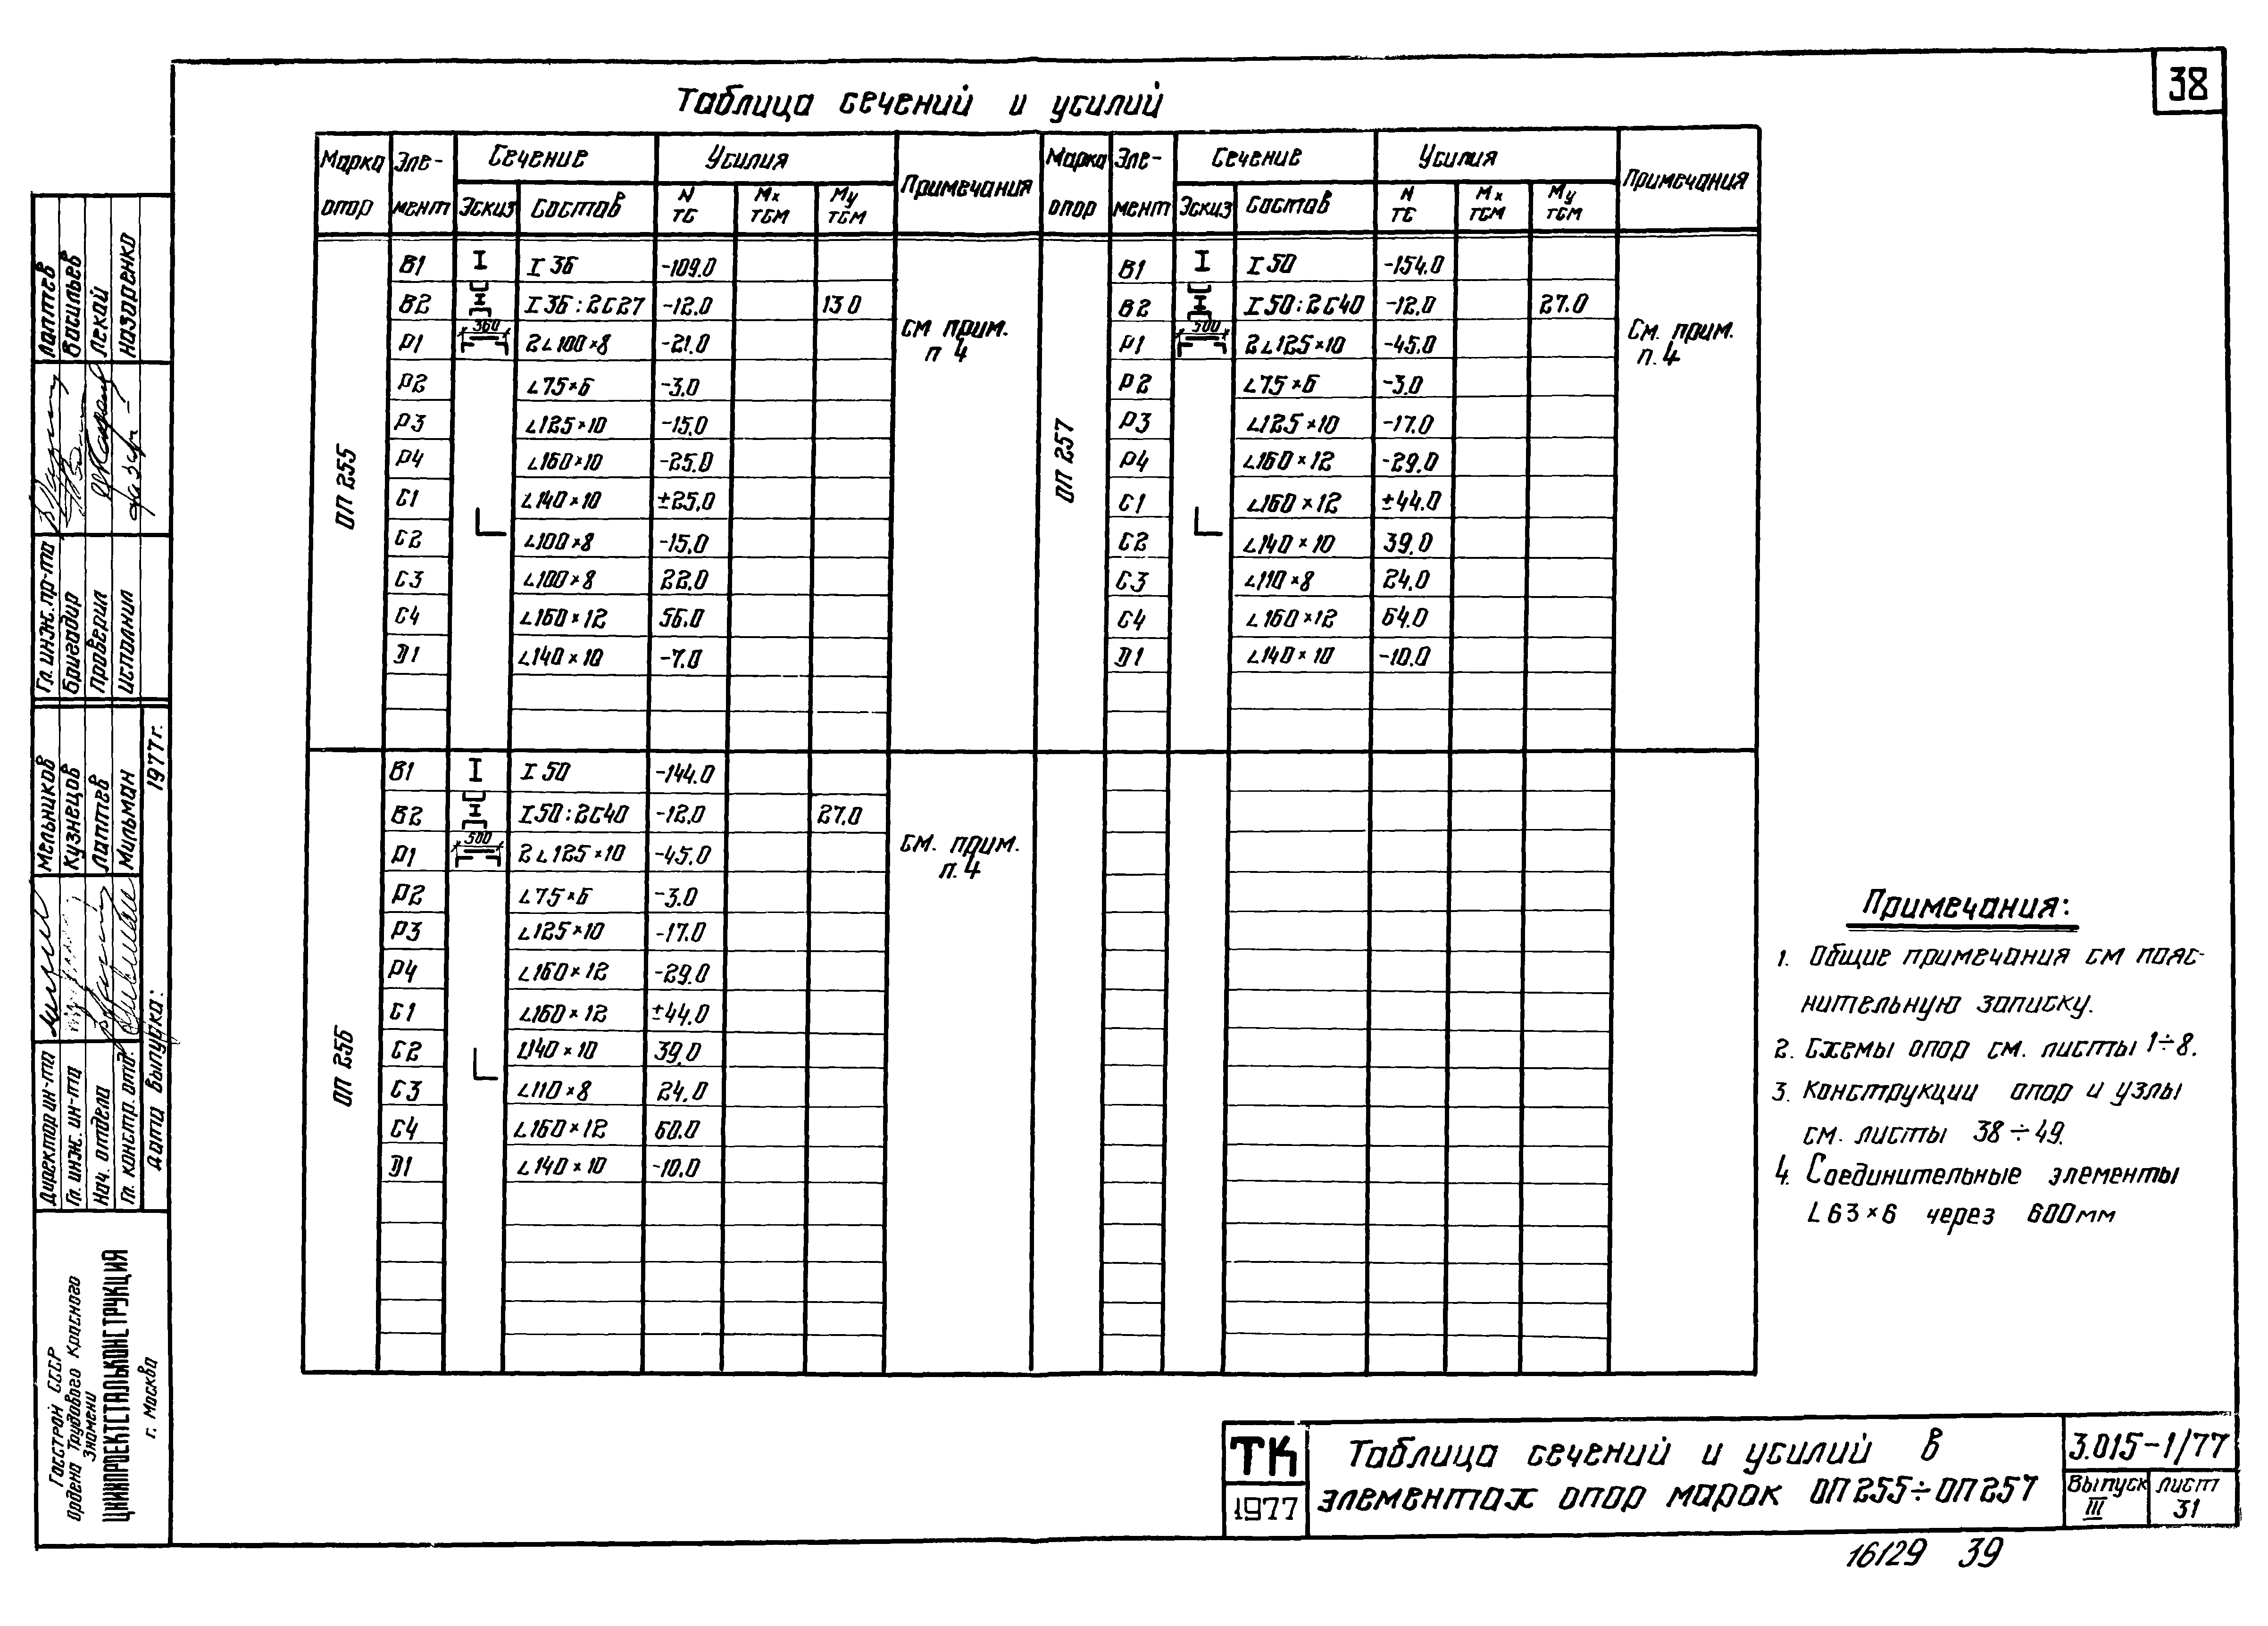 38
Таблица сечений и усилий
Марка опор | Эле-мент | Сечение | Усилия | Примечания | Марка опор | Эле-мент | Сечение | Усилия | Примечания
Эскиз | Состав | N тс | Mx тсм | My тсм | Эскиз | Состав | N тс | Mx тсм | My тсм
ОП 255
В1 I 36 -109.0
В2 I 36:2С27 -12.0 13.0
360
Р1 2L100×8 -21.0
см прим. п 4
Р2 L75×6 -3.0
Р3 L125×10 -15.0
Р4 L160×10 -25.0
С1 L140×10 ±25.0
С2 L100×8 -15.0
С3 L100×8 22.0
С4 L160×12 56.0
D1 L140×10 -7.0
ОП 257
В1 I 50 -154.0
В2 I 50:2С40 -12.0 27.0
500
Р1 2L125×10 -45.0
См. прим. п.4
Р2 L75×6 -3.0
Р3 L125×10 -17.0
Р4 L160×12 -29.0
С1 L160×12 ±44.0
С2 L140×10 39.0
С3 L110×8 24.0
С4 L160×12 64.0
D1 L140×10 -10.0
ОП 256
В1 I 50 -144.0
В2 I 50:2С40 -12.0 27.0
500
Р1 2L125×10 -45.0
см. прим. п.4
Р2 L75×6 -3.0
Р3 L125×10 -17.0
Р4 L160×12 -29.0
С1 L160×12 ±44.0
С2 L140×10 39.0
С3 L110×8 24.0
С4 L160×12 60.0
D1 L140×10 -10.0
Примечания:
1. Общие примечания см пояс-
нительную записку.
2. Схемы опор см. листы 1÷8.
3. Конструкции опор и узлы
см. листы 38÷49.
4. Соединительные элементы
L63×6 через 600мм
ТК
1977
Таблица сечений и усилий в
элементах опор марок ОП255÷ОП257
3.015-1/77
Выпуск III
лист 31
16129 39
Гл. инж. пр-та Лаптев
Бригадир Васильев
Проверил Лекай
Исполнил Назаренко
Директор ин-та Мельников
Гл. инж. ин-та Кузнецов
Нач. отдела Лаптев
Гл. констр. отд. Мильман
Дата выпуска: 1977г.
Госстрой СССР
Ордена Трудового Красного
Знамени
ЦНИИПРОЕКТСТАЛЬКОНСТРУКЦИЯ
г. Москва